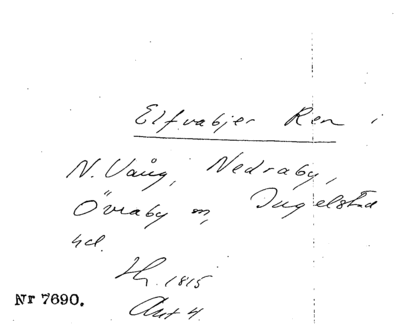 Elfvabjer Ren i
N. Vång, Nedraby,
Övraby m, Ingelstad
hd.
1815
Akt 4
Nr 7690.